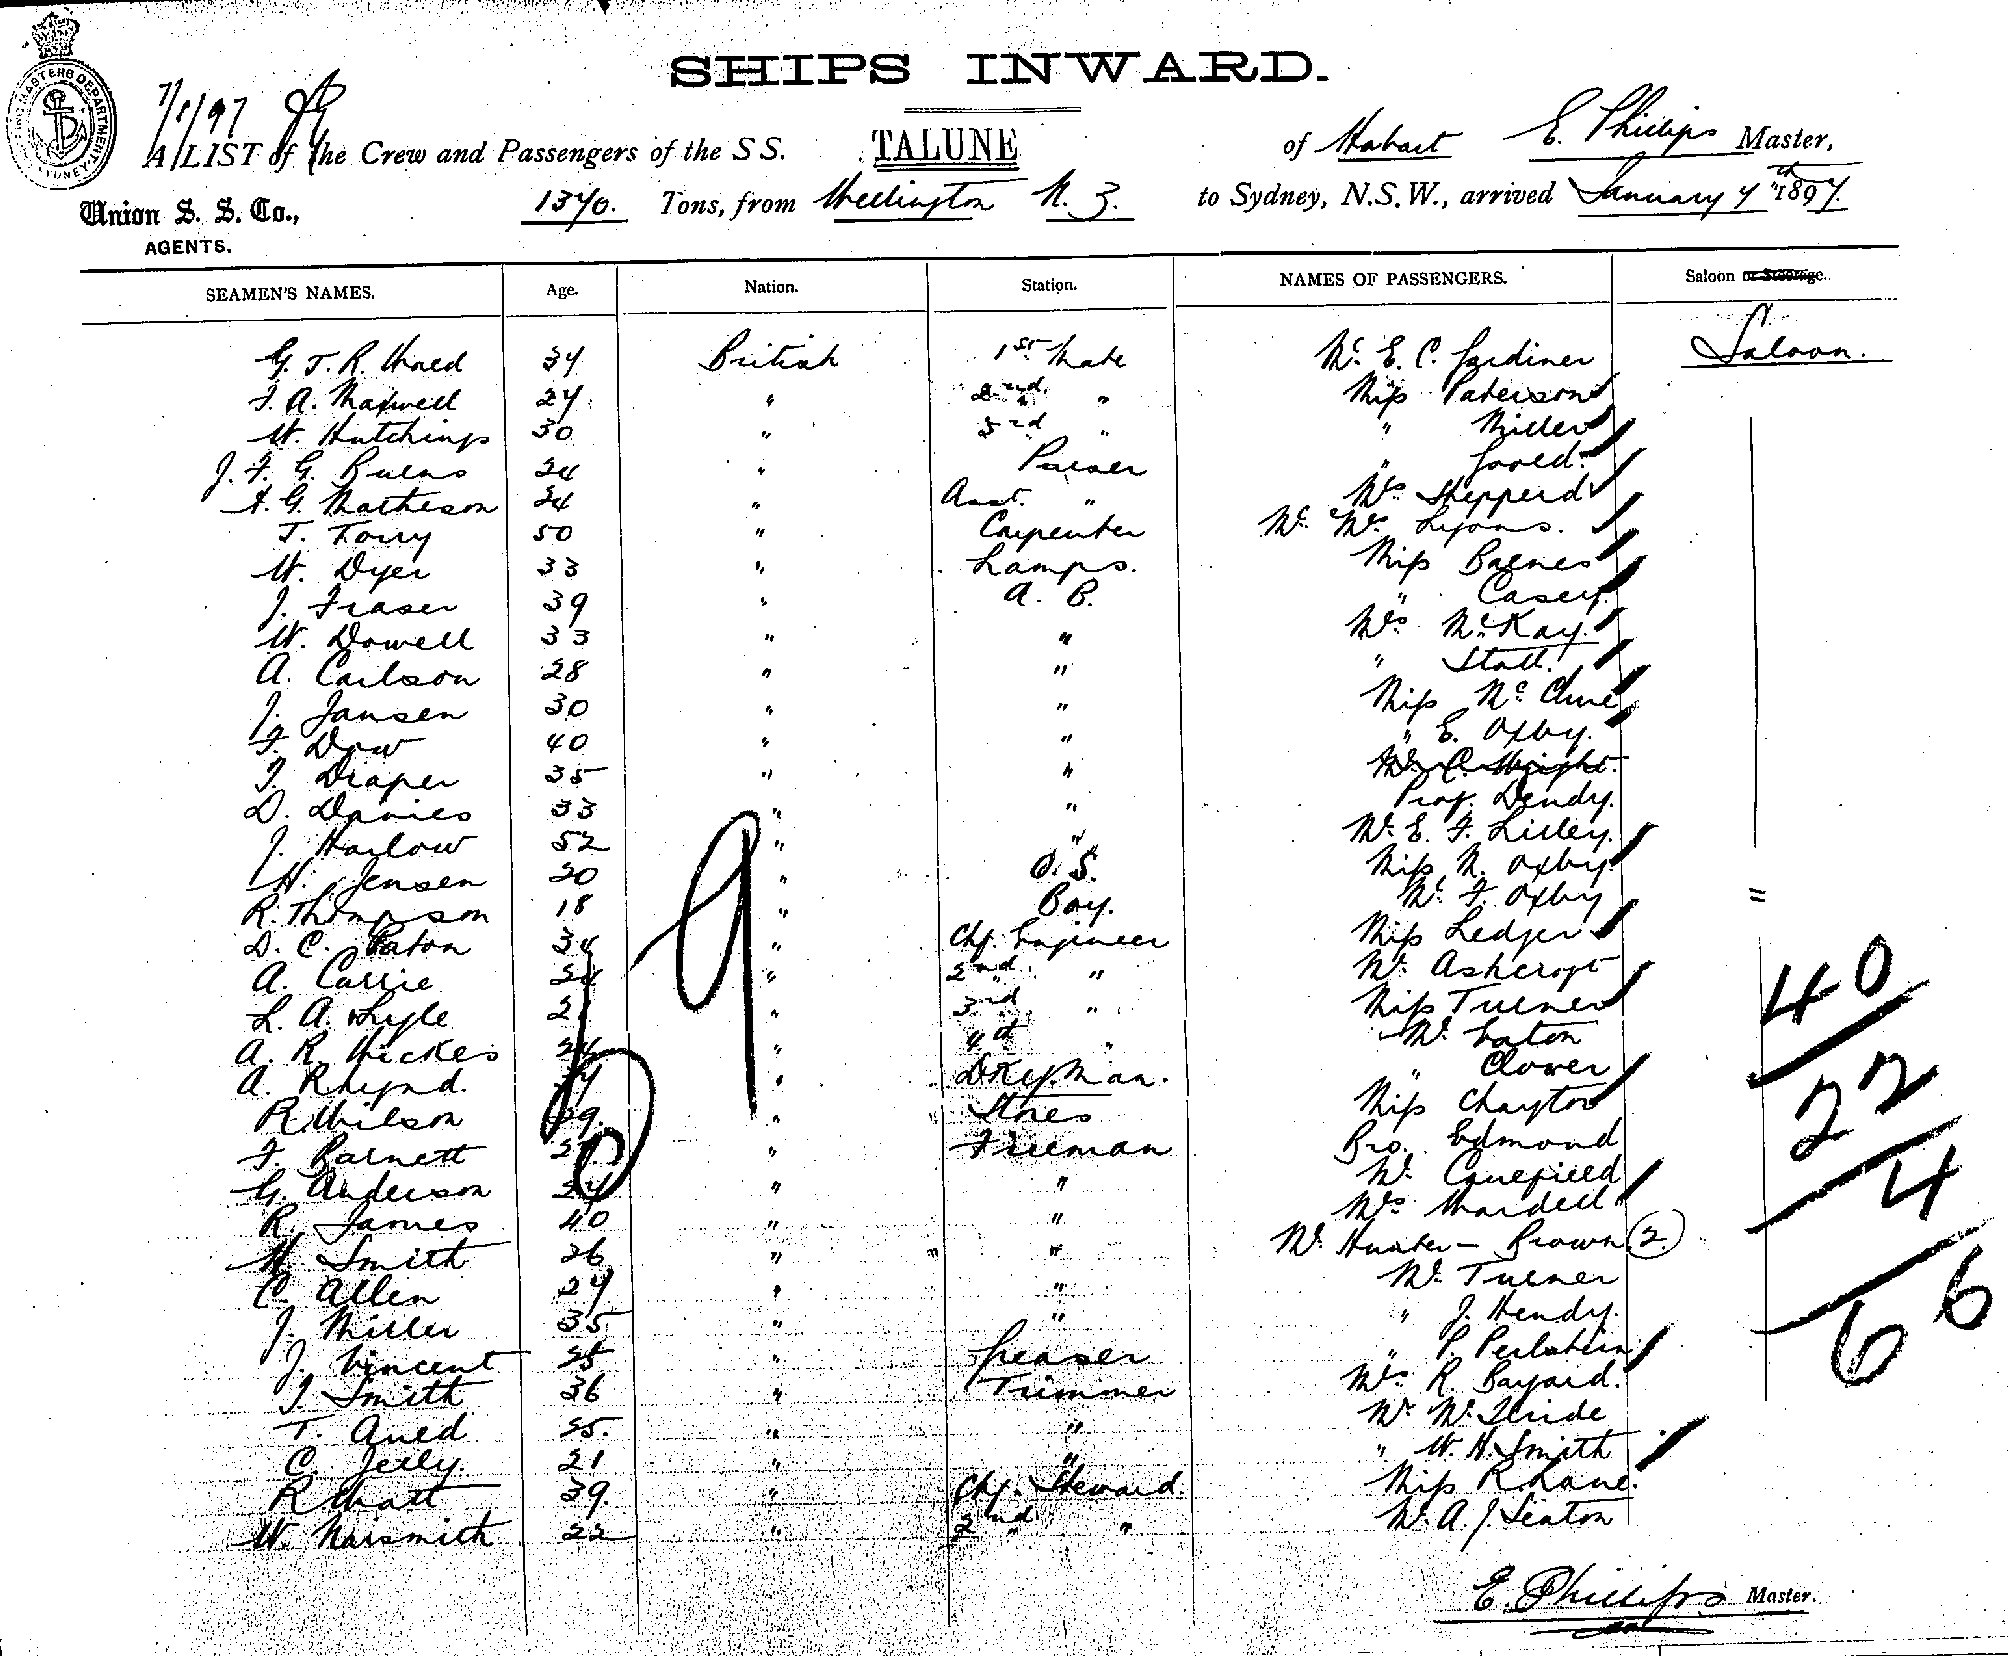 SHIPS INWARD.
7/1/97
A LIST of the Crew and Passengers of the S S. TALUNE of Hobart E. Phillips Master,
Union S. S. Co., 1370. Tons, from Wellington N. Z. to Sydney, N.S.W., arrived January 7th 1897.
AGENTS.
SEAMEN'S NAMES. Age. Nation. Station. NAMES OF PASSENGERS. Saloon or Steerage.
G. J. R. 34 British 1st Mate Mr. E. C. Gardiner Saloon.
F. A. Maxwell 27 " 2nd " Miss Paterson
W. Hutchings 30 " 3rd " " Miller
J. F. G. Burns 24 " Purser "
A. G. Matheson 24 " Asst. " Mrs Shepperd
T. Torry 50 " Carpenter Mr. Mrs. Lyons.
W. Dyer 33 " Lamps. Miss Barnes
J. Fraser 39 " A. B. " Casey.
W. Dowell 33 " " Mrs McKay.
A. Carlson 28 " " "
J. Jansen 30 " " Miss
F. Dow 40 " " " E. Oxby.
T. Draper 35 " " Mr. C. Wright.
D. Davies 33 " " Prof. Dendy.
J. Harlow 52 " " Mr. E. F. Lilley.
H. Jensen 20 " O. S. Miss M. Oxby
R. Thompson 18 " Boy. Mr. F. Oxby
D. C. Paton 34 " Chf. Engineer Miss Ledger
A. Corrie 24 " 2nd " Mr. Ashcroft
L. A. Lyle " 3rd " Miss Turner
A. R. Hickes 24 " 4th " Mr. Eaton
A. Rhynd. " Dkyman. " Clover
R. Wilson 29. " Stores Miss Chaytor
F. Barnett " Fireman Bro. Edmond
G. Anderson " " Mr. Caulfield
R. James 40 " " Mrs Wardell
W. Smith 26 " " Mr. Hunter-Brown (2.)
C. Allen 27 " " Mr. Turner
J. Miller 35 " " " J. Hendy.
J. Vincent 25 " Greaser " P. Perlstein
J. Smith 36 " Trimmer Mrs R. Bayard.
T. 25. " " Mr
C. 21 " " " W. H. Smith
R. Watt 39. " Chf. Steward. Miss R. Lane.
W. Naismith 22 " 2nd " Mr. A. J. Seaton
9
40
22
4
66
E. Phillips Master.